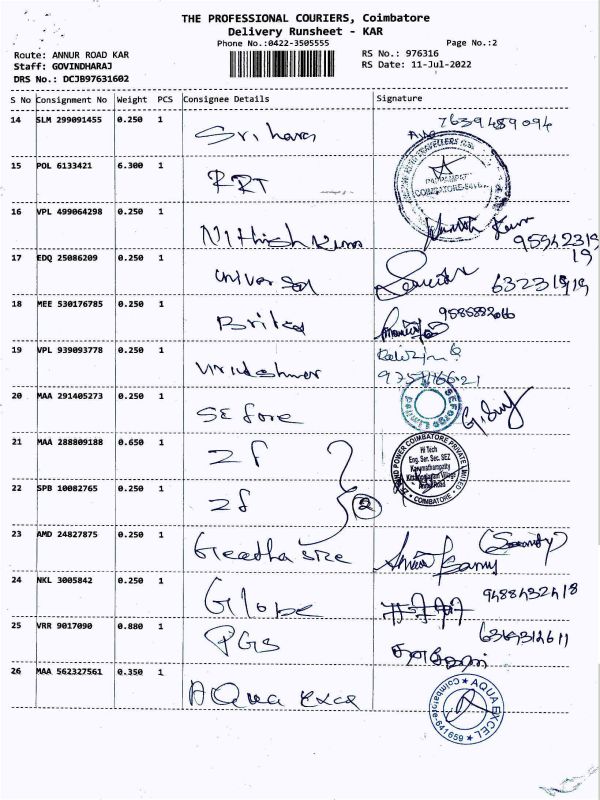 THE PROFESSIONAL COURIERS, Coimbatore
Delivery Runsheet - KAR
Phone No.:0422-3505555 Page No.:2
Route: ANNUR ROAD KAR RS No.: 976316
Staff: GOVINDHARAJ RS Date: 11-Jul-2022
DRS No.: DCJB97631602
S No Consignment No Weight PCS Consignee Details Signature
14 SLM 299091455 0.250 1 7639489094
15 POL 6133421 6.300 1 RRT
COIMBATORE
16 VPL 499064298 0.250 1 Nithish Kumar
17 EDQ 25086209 0.250 1 Universal
18 MEE 530176785 0.250 1 Brited
19 VPL 939093778 0.250 1
20 MAA 291405273 0.250 1 SE fore
21 MAA 288809188 0.650 1 ZF
POWER COIMBATORE PRIVATE LIMITED
Hi Tech
Eng. Ser. Sec. SEZ
Annur Road
COIMBATORE
22 SPB 10082765 0.250 1 ZF 2
23 AMD 24827875 0.250 1 (Security)
24 NKL 3005842 0.250 1 Globe 9488432418
25 VRR 9017090 0.880 1 PGS
26 MAA 562327561 0.350 1 AQua Exce
AQUA EXCEL
Coimbatore-641659